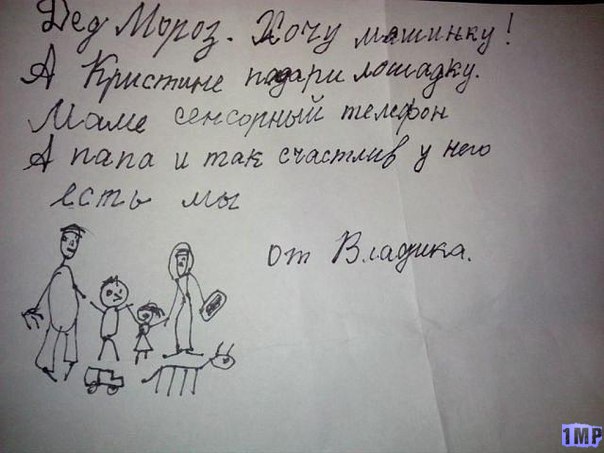 Дед Мороз. Хочу машинку!
А Кристине подари лошадку.
Маме сенсорный телефон
А папа и так счастлив у него
есть мы
от Владика.
1MP